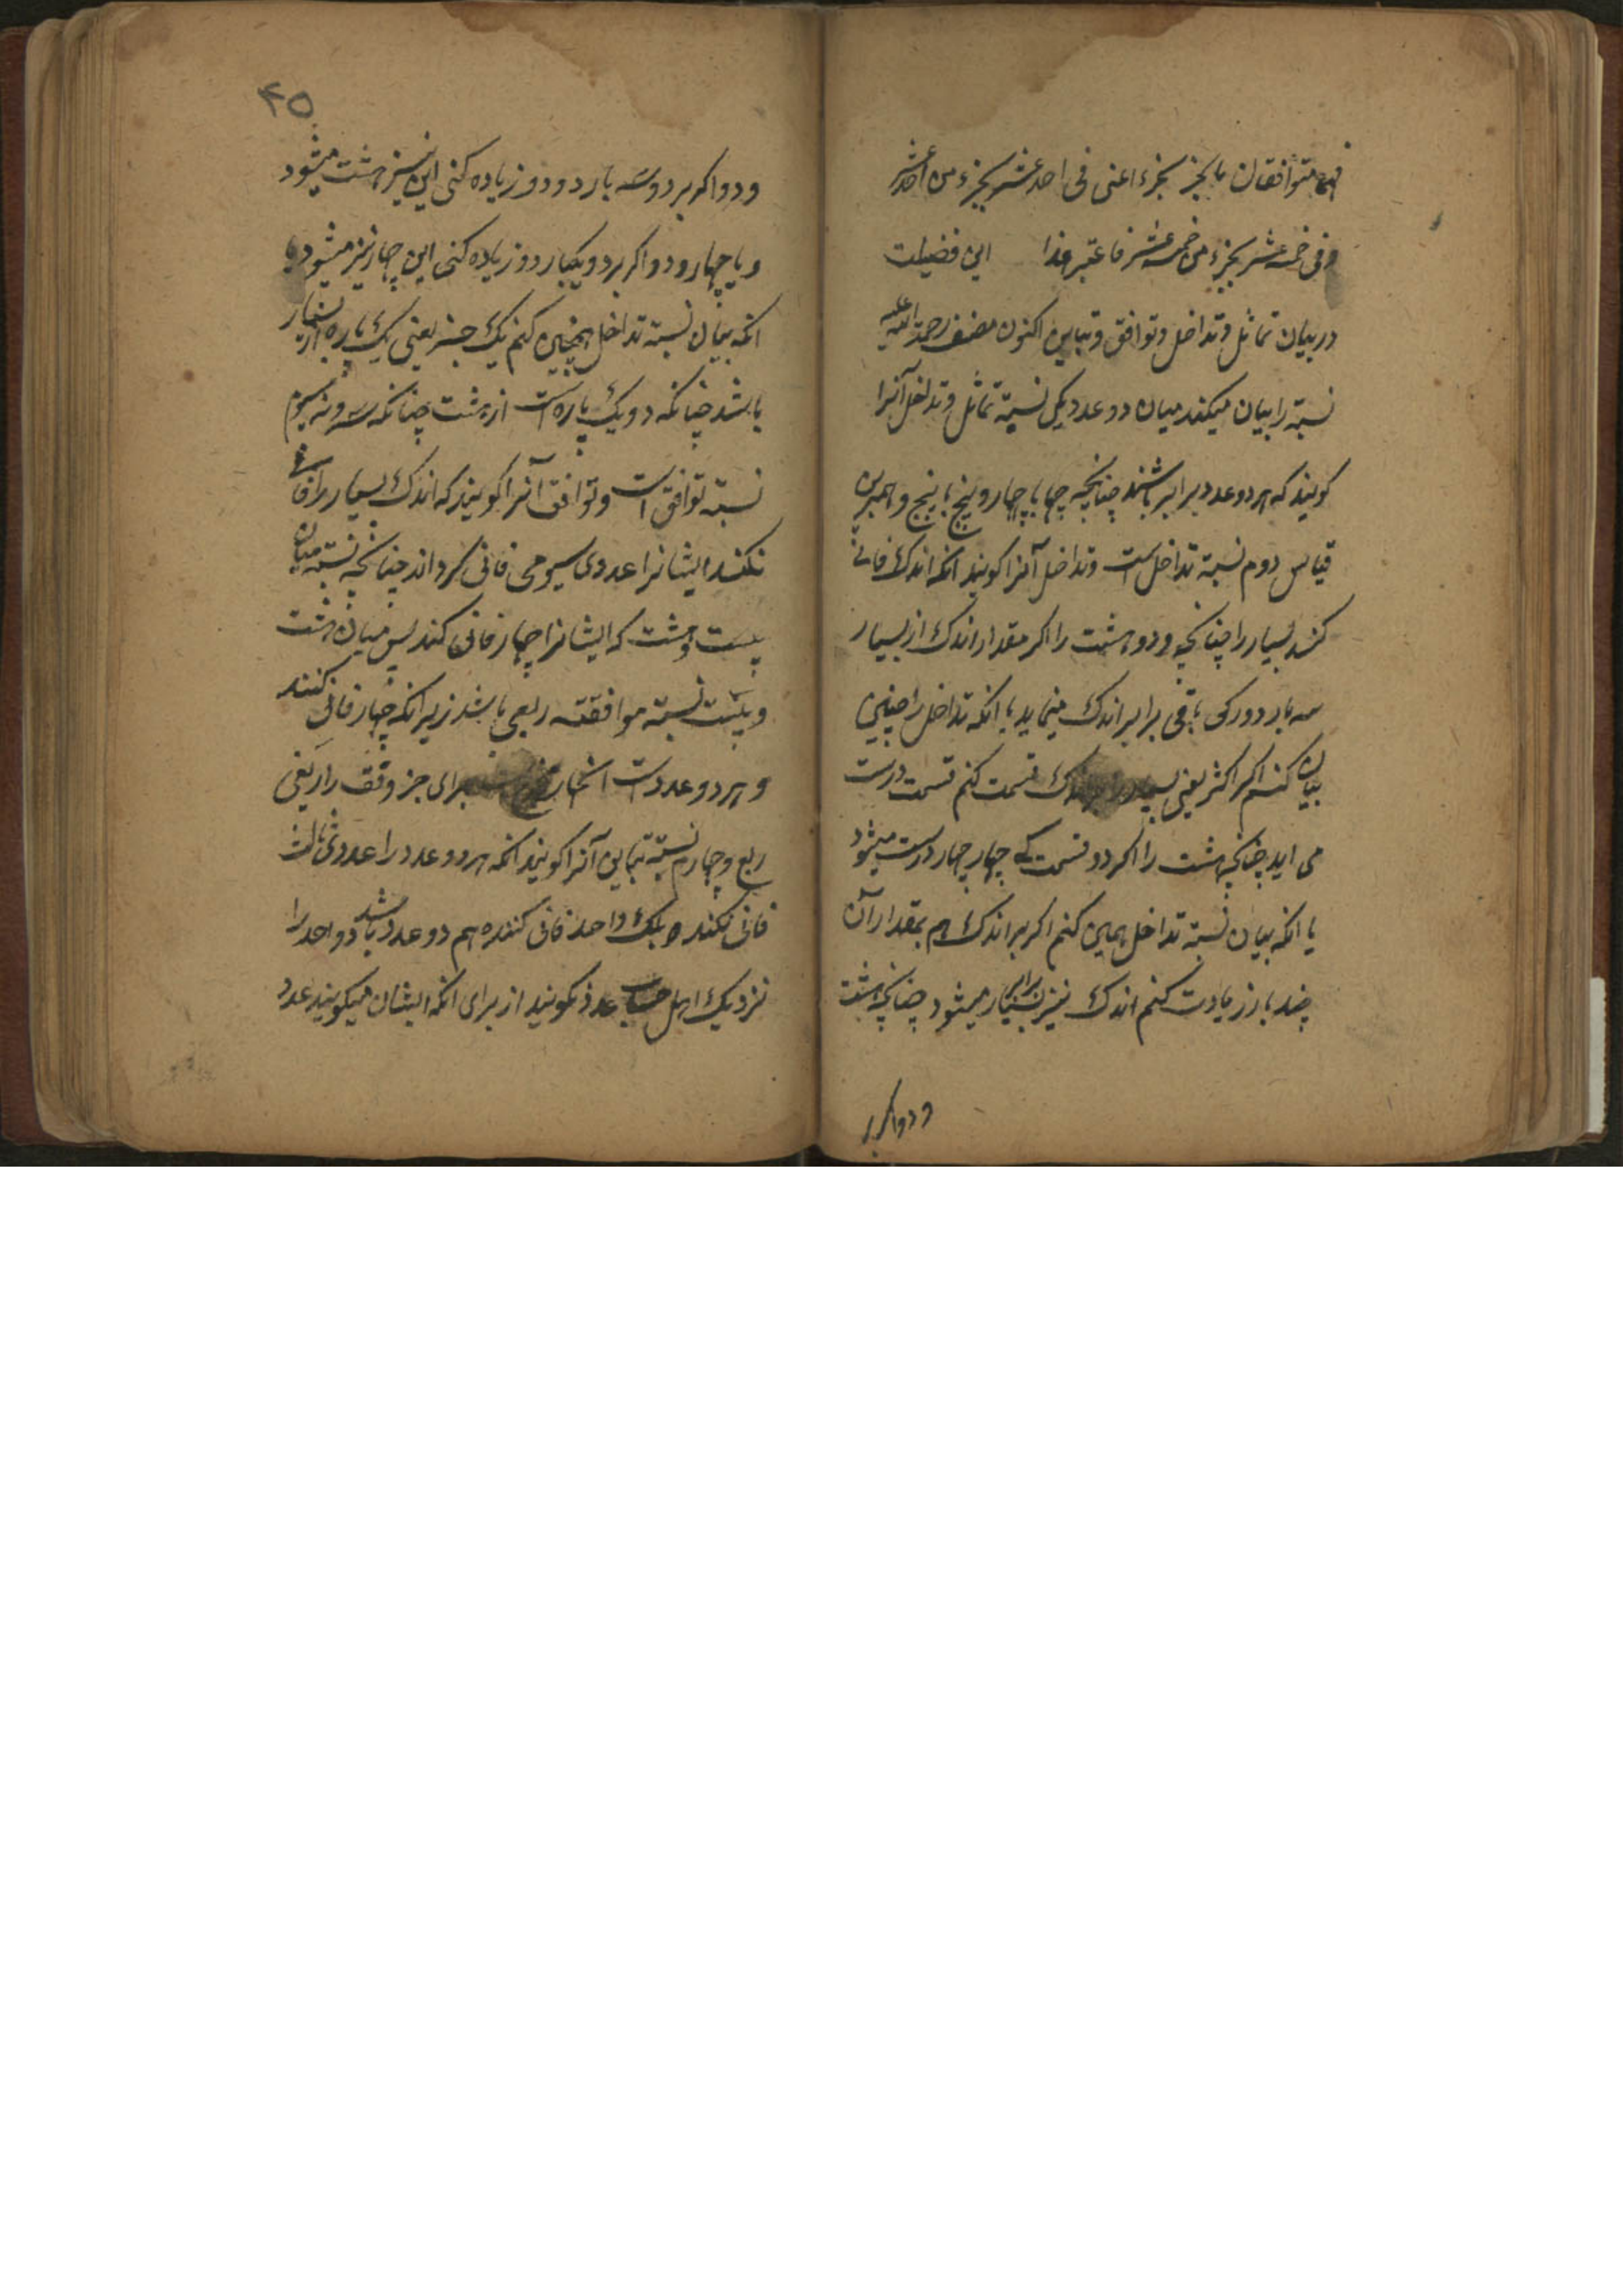 فهما متوافقان بالجزء بجزء اعنی فی احد عشر بجزء من احد عشر
و فی خمسه عشر بجزء من خمسة عشر فاعتبر هذا این فضیلت
در بیان تماثل و تداخل و توافق و تباین اکنون مصنف رحمة الله علیه
نسبة را بیان میکند میان دو عدد یکی نسبة تماثل و تداخل آنرا
کویند که هر دو عدد برابر باشند چنانچه چهار با چهار و پنج با پنج و همبرین
قیاس دوم نسبة تداخل است و تداخل آنرا کویند انکه اندک فانی
کند بسیار را چنانچه دو و هشت را اکر مقدار اندک از بسیار
سه بار دور کی باقی برابر اندک مینماید یا انکه تداخل را چنین
بیان کنم اکر اکثر یعنی بسیار را اندک قسمت کنم قسمت درست
می اید چنانچه هشت را اکر دو قسمت کے چهار چهار درست میشود
یا انکه بیان نسبة تداخل همین کنم اکر بر اندک هم بمقدار آن
چند بار زیادت کنم اندک نیز برابر بسیار میشود چنانچه هشت
و دو اکر بر
۴۵
و دو اکر بر دو سه بار دو دو زیاده کنی این نیز هشت میشود
و یا چهار و دو اکر بر دو یکبار دو زیاده کنی این چهار نیز میشود یا
انکه بیان نسبة تداخل همچنین کنم یک جز یعنی یک پاره از بسیار
باشد چنانکه دو یک پاره است از هشت چنانکه سه و نه سوم
نسبة توافق است و توافق آنرا کویند که اندک بسیار را فانی
نکند ایشانرا عددی سیومی فانی کرداند چنانچه نسبة میان
بیست و هشت که ایشانرا چهار فانی کند پس میان هشت
و بیست نسبة موافقته ربعی باشد زیرانکه چهار فانی کنند
و هر دو عدد است برای جز وفق را ربعی
ربع و چهارم نسبة تباین آنرا کویند انکه هر دو عدد را عددی ثالث
فانی نکند بلک واحد فانی کننده هم دو عدد باشد و واحد را
نزدیک اهل حساب عدد نکویند از برای انکه ایشان میکویند عدد